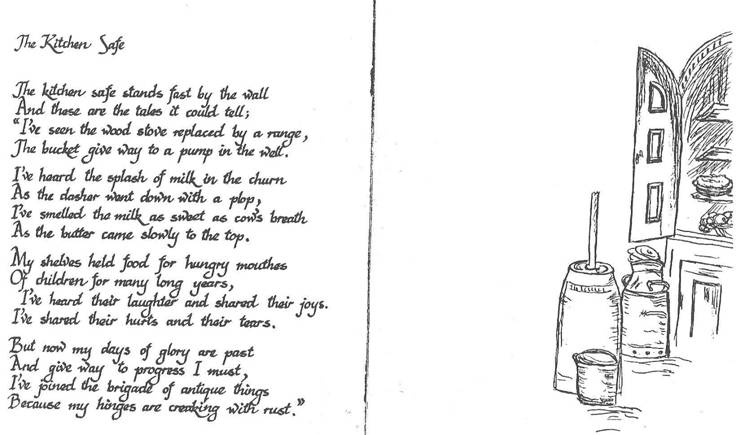 The Kitchen Safe
The kitchen safe stands fast by the wall
And these are the tales it could tell;
"I've seen the wood stove replaced by a range,
The bucket give way to a pump in the well.
I've heard the splash of milk in the churn
As the dasher went down with a plop,
I've smelled the milk as sweet as cow's breath
As the butter came slowly to the top.
My shelves held food for hungry mouthes
Of children for many long years,
I've heard their laughter and shared their joys.
I've shared their hurts and their tears.
But now my days of glory are past
And give way to progress I must,
I've joined the brigade of antique things
Because my hinges are creaking with rust."